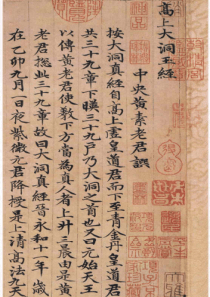 高上大洞玉經
中央黃素老君譔
按大洞真經自高上虛皇道君而下至青金丹皇道君
共三十九章下暎三十九戶乃大洞之首也又曰元始天王
以傳黃老君使教下方當為真人者上升三晨由是黃
老君摠此三十九章故曰大洞真經晉永和十一年歲
在乙卯九月一日夜紫微元君降授是上清高法九天